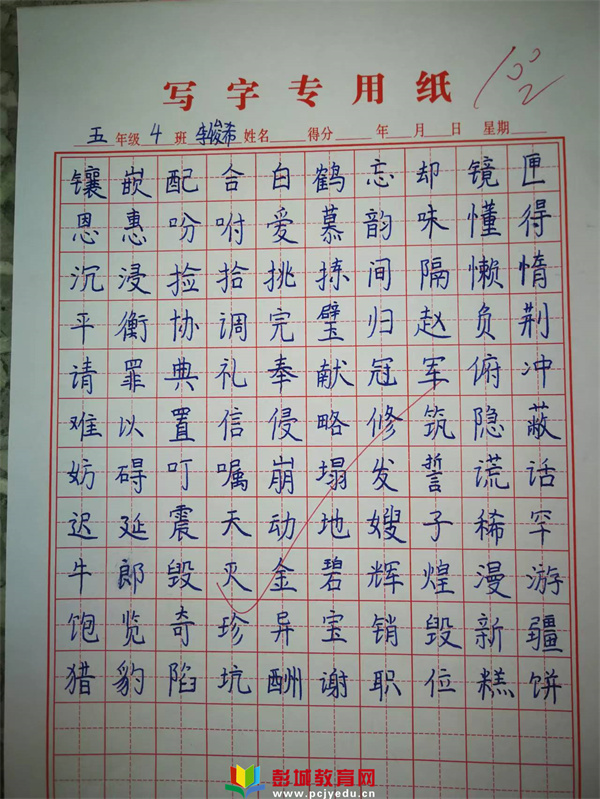 100
2
写字专用纸
五年级4班李俊希姓名 得分 年 月 日 星期
镶嵌配合白鹤忘却镜匣
恩惠吩咐爱慕韵味懂得
沉浸捡拾挑拣间隔懒惰
平衡协调完璧归赵负荆
请罪典礼奉献冠军俯冲
难以置信侵略修筑隐蔽
妨碍叮嘱崩塌发誓谎话
迟延震天动地嫂子稀罕
牛郎毁灭金碧辉煌漫游
饱览奇珍异宝销毁新疆
猎豹陷坑酬谢职位糕饼
彭城教育网
www.pcjyedu.cn